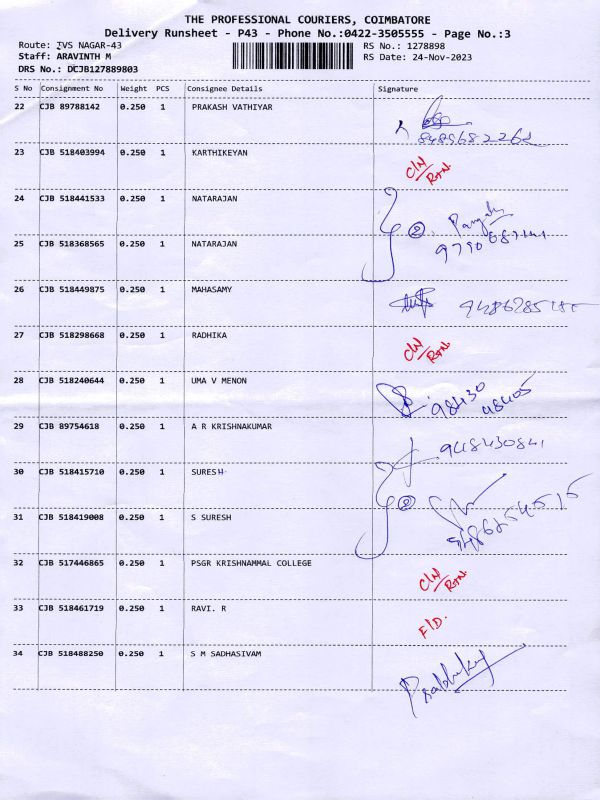 THE PROFESSIONAL COURIERS, COIMBATORE
Delivery Runsheet - P43 - Phone No.:0422-3505555 - Page No.:3
Route: TVS NAGAR-43
RS No.: 1278898
Staff: ARAVINTH M
RS Date: 24-Nov-2023
DRS No.: DCJB127889803
S No Consignment No Weight PCS Consignee Details Signature
22 CJB 89788142 0.250 1 PRAKASH VATHIYAR
8489682262
23 CJB 518403994 0.250 1 KARTHIKEYAN C/N/RTN.
24 CJB 518441533 0.250 1 NATARAJAN
②
25 CJB 518368565 0.250 1 NATARAJAN
26 CJB 518449875 0.250 1 MAHASAMY
27 CJB 518298668 0.250 1 RADHIKA C/N/RTN.
28 CJB 518240644 0.250 1 UMA V MENON
98430
48405
29 CJB 89754618 0.250 1 A R KRISHNAKUMAR
948430841
30 CJB 518415710 0.250 1 SURESH
②
31 CJB 518419008 0.250 1 S SURESH
32 CJB 517446865 0.250 1 PSGR KRISHNAMMAL COLLEGE C/N/RTN.
33 CJB 518461719 0.250 1 RAVI. R F/D.
34 CJB 518488250 0.250 1 S M SADHASIVAM